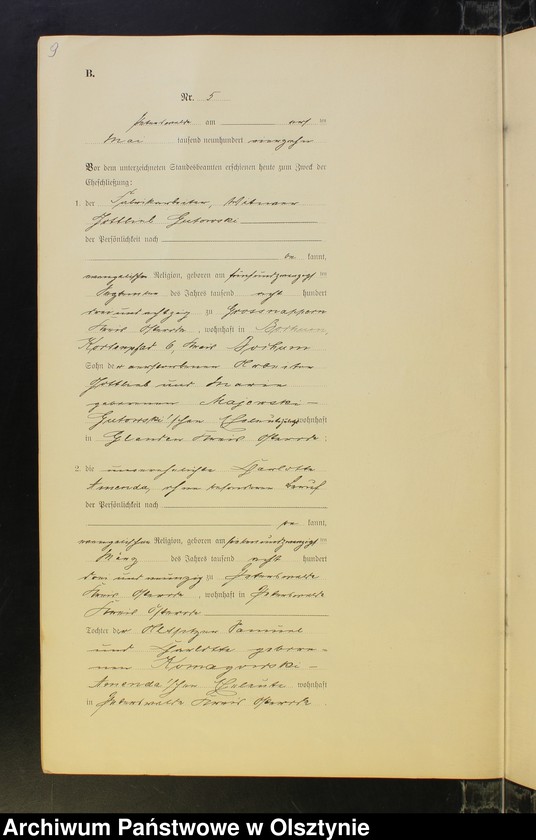 9
B.
Nr. 5
Peterswalde am
Mai tausend neunhundert vierzehn
Vor dem unterzeichneten Standesbeamten erschienen heute zum Zweck der
Eheschließung:
1. der Fabrikarbeiter, Witwer
Gottlieb Gutowski
der Persönlichkeit nach
be kannt,
evangelischer Religion, geboren am fünfundzwanzigsten
September des Jahres tausend acht hundert
dreiundachtzig zu Grossnappern
Kreis Osterode, wohnhaft in Borkum,
6, Kreis Borkum
Sohn der verstorbenen
Gottlieb und Marie
geborenen Majewski-
Gutowski'schen Eheleute wohnhaft
in Glanden Kreis Osterode;
2. die unverehelichte Charlotte
Amenda, ohne besonderen Beruf
der Persönlichkeit nach
be kannt,
evangelischer Religion, geboren am siebenundzwanzigsten
März des Jahres tausend acht hundert
drei und neunzig zu Peterswalde
Kreis Osterode, wohnhaft in Peterswalde
Kreis Osterode
Tochter der Altsitzer Samuel
und Charlotte gebore-
nen Komagowski-
Amenda'schen Eheleute wohnhaft
in Peterswalde Kreis Osterode.
Archiwum Państwowe w Olsztynie